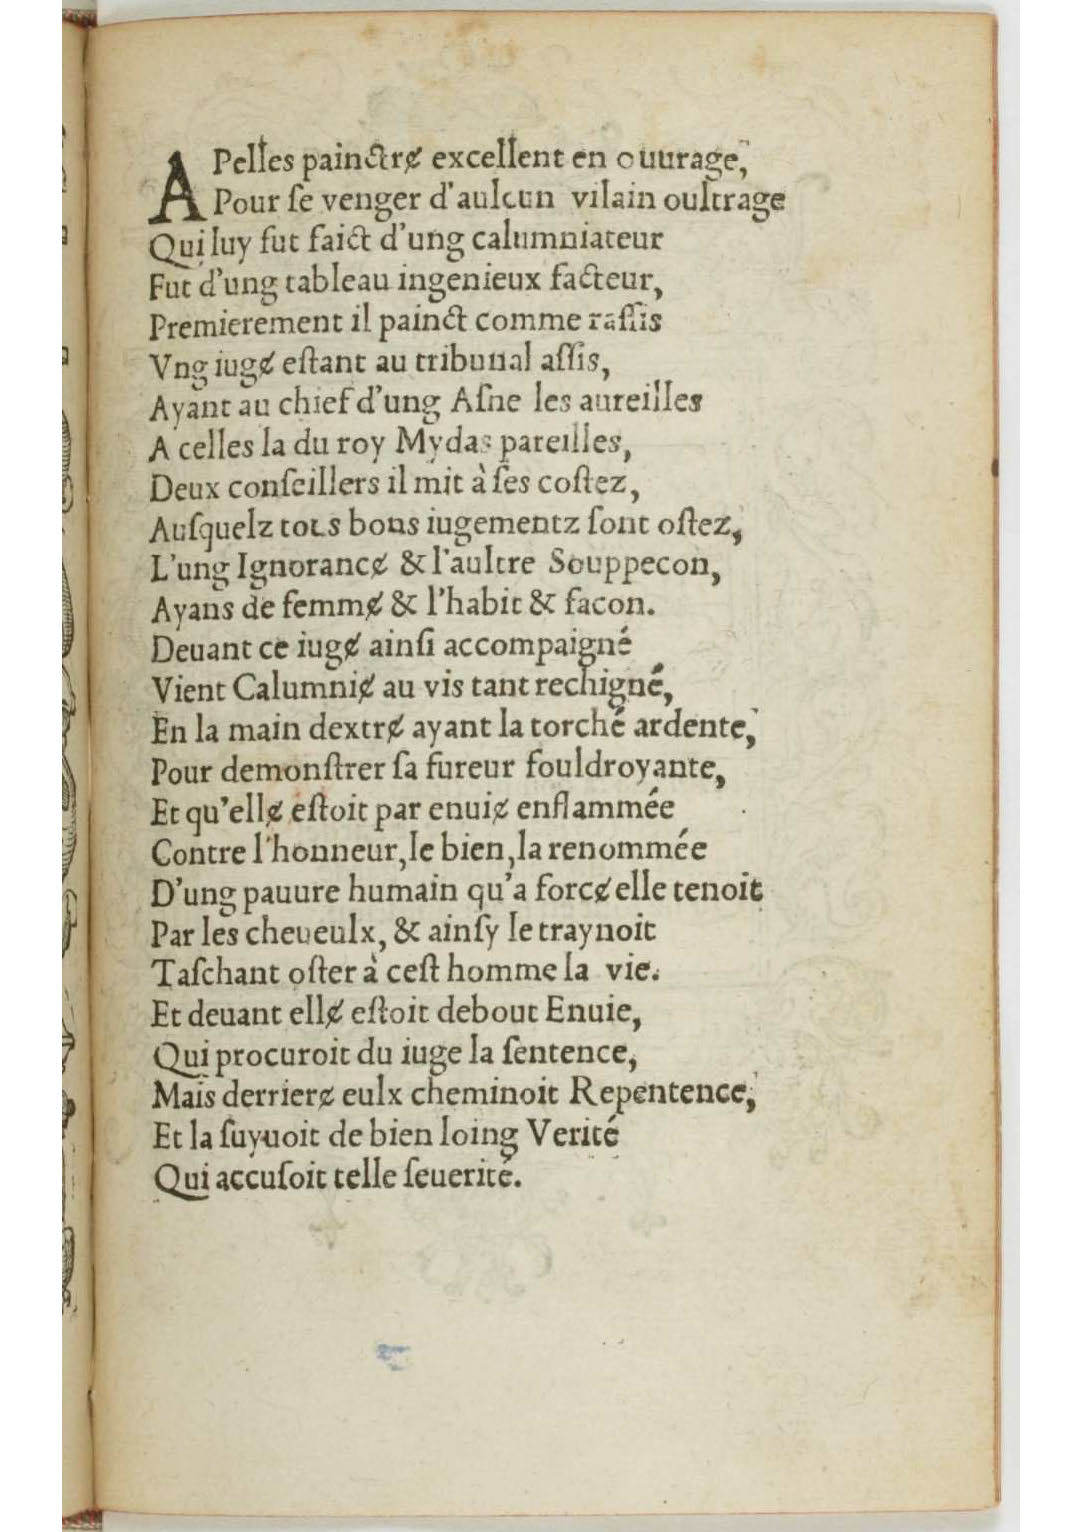 APelles painctrɇ excellent en ouurage,
Pour ſe venger d'aulcun vilain oultrage
Qui luy fut faict d'ung calumniateur
Fut d'ung tableau ingenieux facteur,
Premierement il painct comme raſſis
Vng iugɇ eſtant au tribunal aſſis,
Ayant au chief d'ung Aſne les aureilles
A celles la du roy Mydas pareilles,
Deux conſeillers il mit à ſes coſtez,
Auſquelz tous bons iugementz ſont oſtez,
L'ung Ignorancɇ & l'aultre Souppecon,
Ayans de femmɇ & l'habit & facon.
Deuant ce iugɇ ainſi accompaigné
Vient Calumniɇ au vis tant rechigné,
En la main dextrɇ ayant la torché ardente,
Pour demonſtrer ſa fureur fouldroyante,
Et qu'ellɇ eſtoit par enuiɇ enflammée
Contre l'honneur,le bien,la renommée
D'ung pauure humain qu'a forcɇ elle tenoit
Par les cheueulx, & ainſy le traynoit
Taſchant oſter à ceſt homme la vie.
Et deuant ellɇ eſtoit debout Enuie,
Qui procuroit du iuge la ſentence,
Mais derrierɇ eulx cheminoit Repentence,
Et la ſuyuoit de bien loing Verité
Qui accuſoit telle ſeuerité.